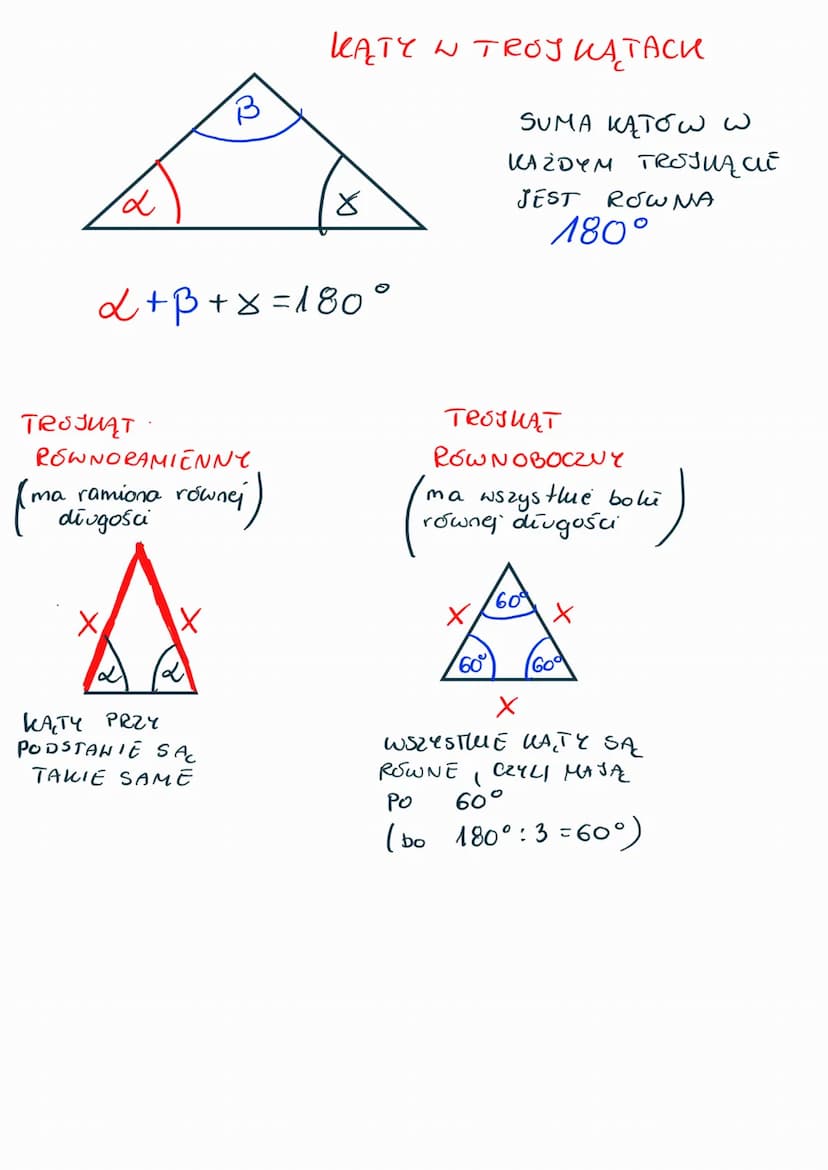 KĄTY W TRÓJKĄTACH
β
α
γ
SUMA KĄTÓW W
KAŻDYM TRÓJKĄCIE
JEST RÓWNA
180°
α+β+γ=180°
TRÓJKĄT
RÓWNORAMIENNY
(ma ramiona równej
długości)
X X
α α
KĄTY PRZY
PODSTAWIE SĄ
TAKIE SAME
TRÓJKĄT
RÓWNOBOCZNY
(ma wszystkie boki
równej długości)
60°
X X
60° 60°
X
WSZYSTKIE KĄTY SĄ
RÓWNE, CZYLI MAJĄ
PO 60°
(bo 180°:3=60°)